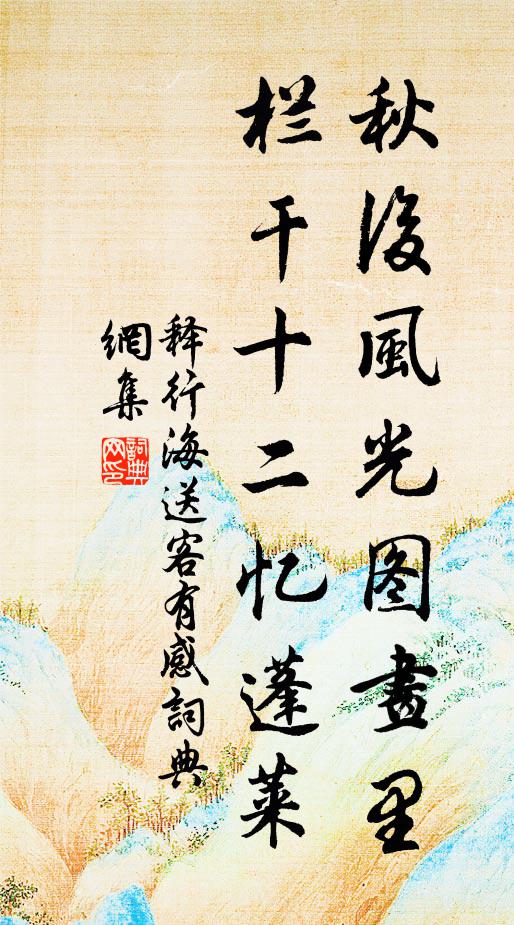 秋後風光图畫里
栏干十二忆蓬莱
释行海送客有感詞典
網集
詞典网印